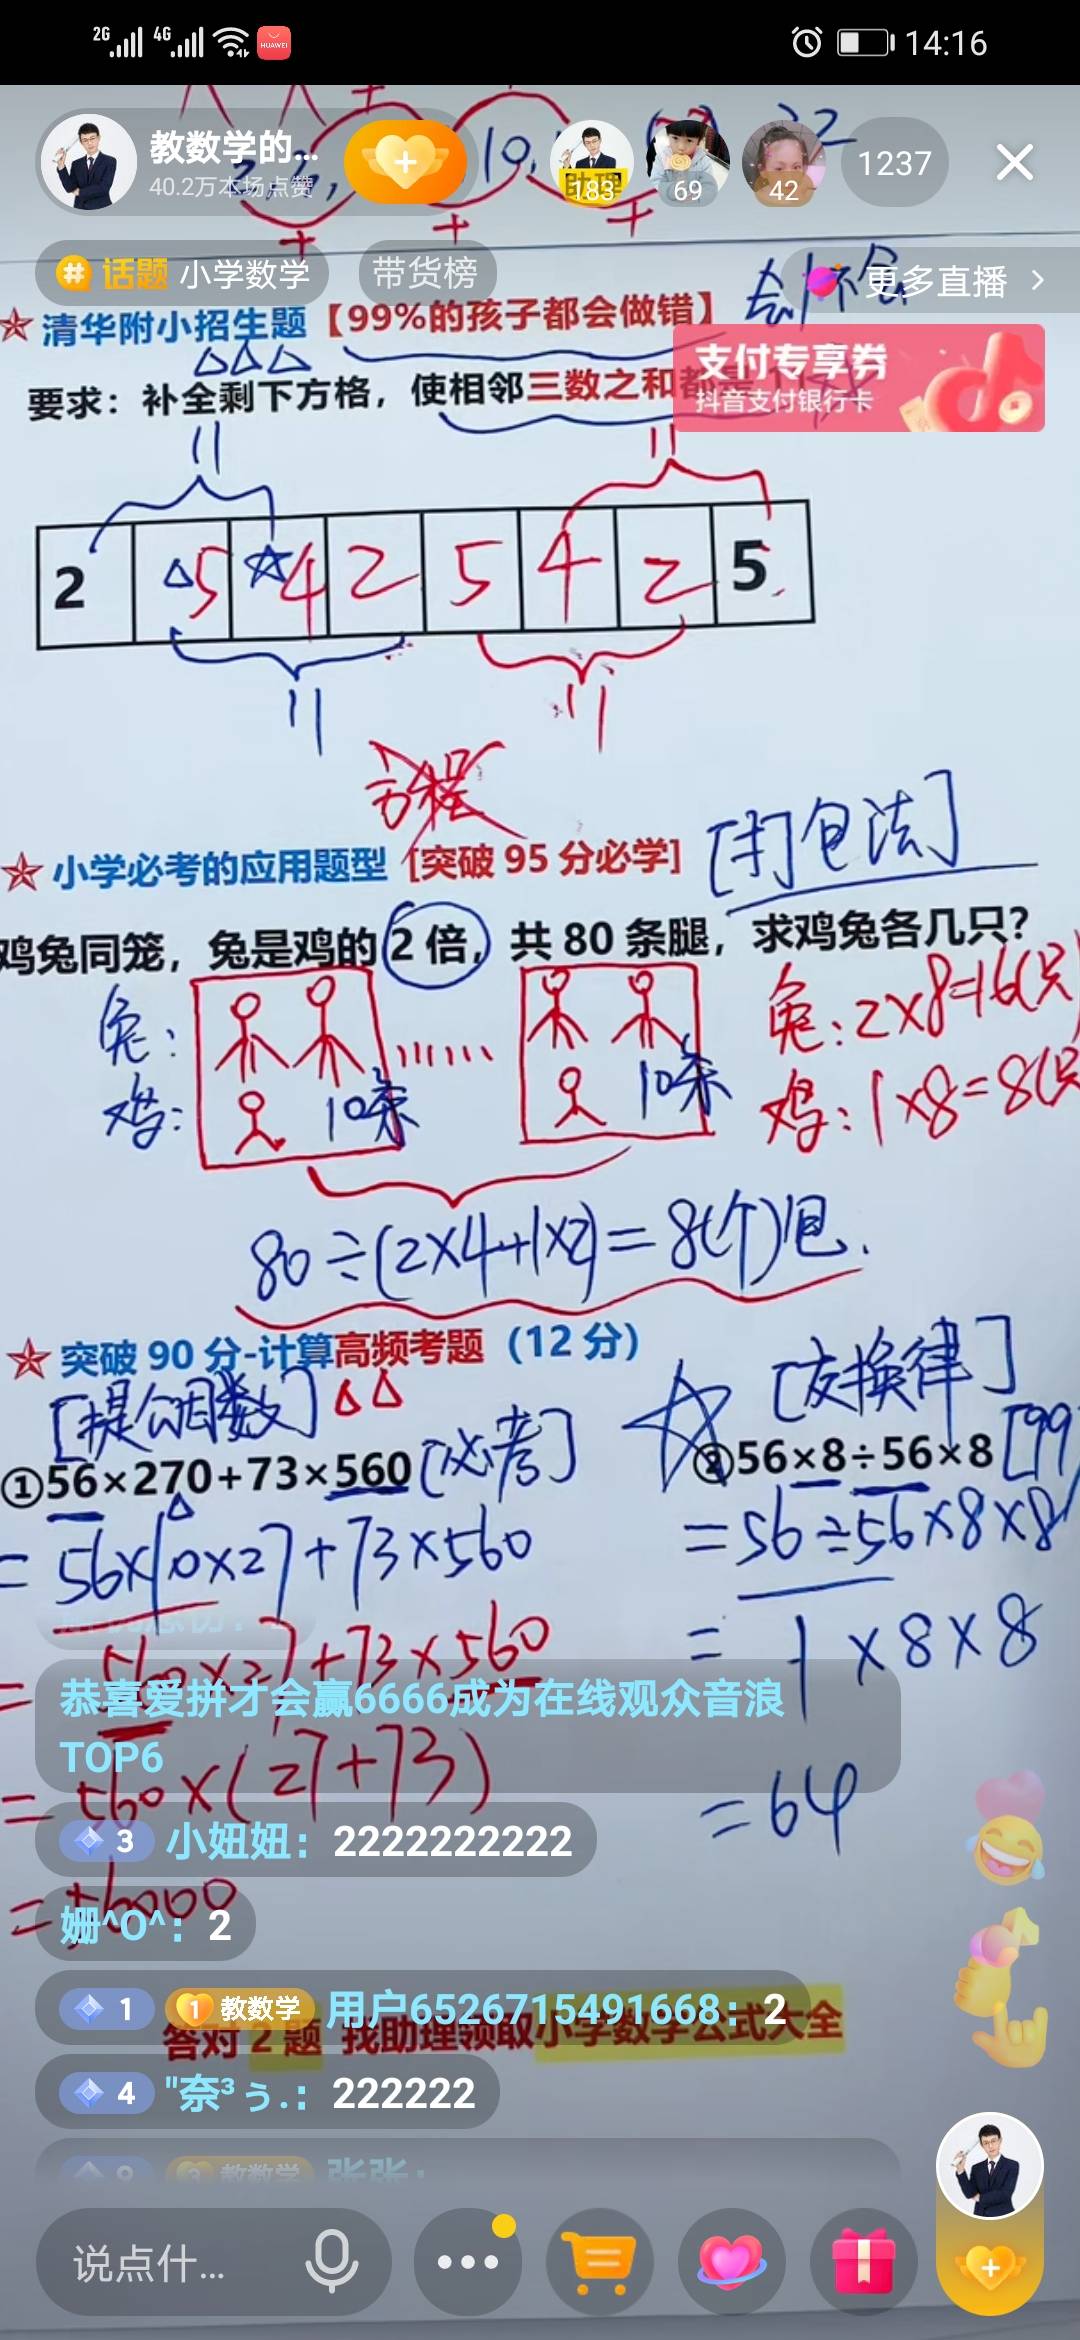 2G 4G HUAWEI 14:16
教数学的...
40.2万本场点赞
助理
183 69 42 1237
10, 22
# 话题 小学数学 带货榜 更多直播
清华附小招生题【99%的孩子都会做错】
支付专享券
抖音支付银行卡
要求：补全剩下方格，使相邻三数之和都是
11 11
2 △5 ☆4 2 5 4 2 5
11 11
方程
小学必考的应用题型 [突破 95 分必学] [打包法]
鸡兔同笼，兔是鸡的 2 倍，共 80 条腿，求鸡兔各几只?
兔: 兔: 2×8=16(只
鸡: 10条 10条 鸡: 1×8=8(只
80÷(2×4+1×2)=8(个)包.
突破 90 分-计算高频考题（12 分）
[提公因数] [交换律]
①56×270+73×560 [必考] ②56×8÷56×8 [99
=56×10×27+73×560 =56÷56×8×8
=560×27+73×560 =1×8×8
恭喜爱拼才会赢6666成为在线观众音浪
TOP6
=560×(27+73) =64
3 小妞妞：2222222222
=56000
姗^O^：2
1 1 教数学 用户6526715491668：2
答对 2 题 找助理领取小学数学公式大全
4 "奈³ぅ.：222222
教数学 张张：
说点什...